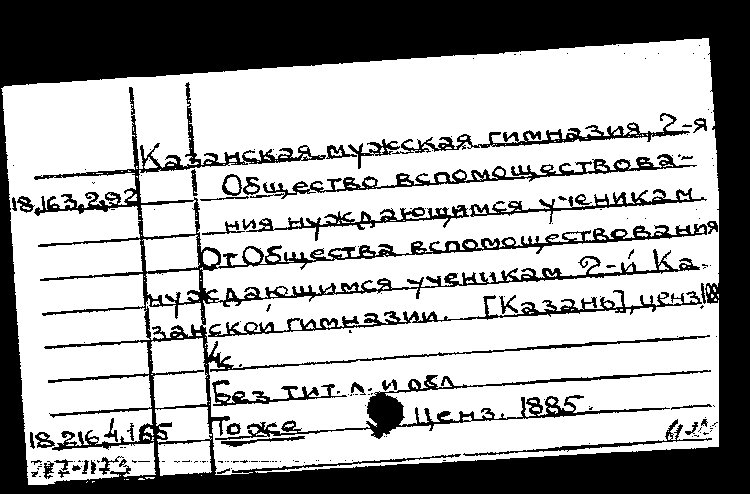 Казанская мужская гимназия, 2-я.
18.163.2.92 Общество вспомоществова-
ния нуждающимся ученикам.
От Общества вспомоществования
нуждающимся ученикам 2-й Ка-
занской гимназии. [Казань], ценз.
4с.
Без тит. л. и обл.
18.216.4.165 То же Ценз. 1885.